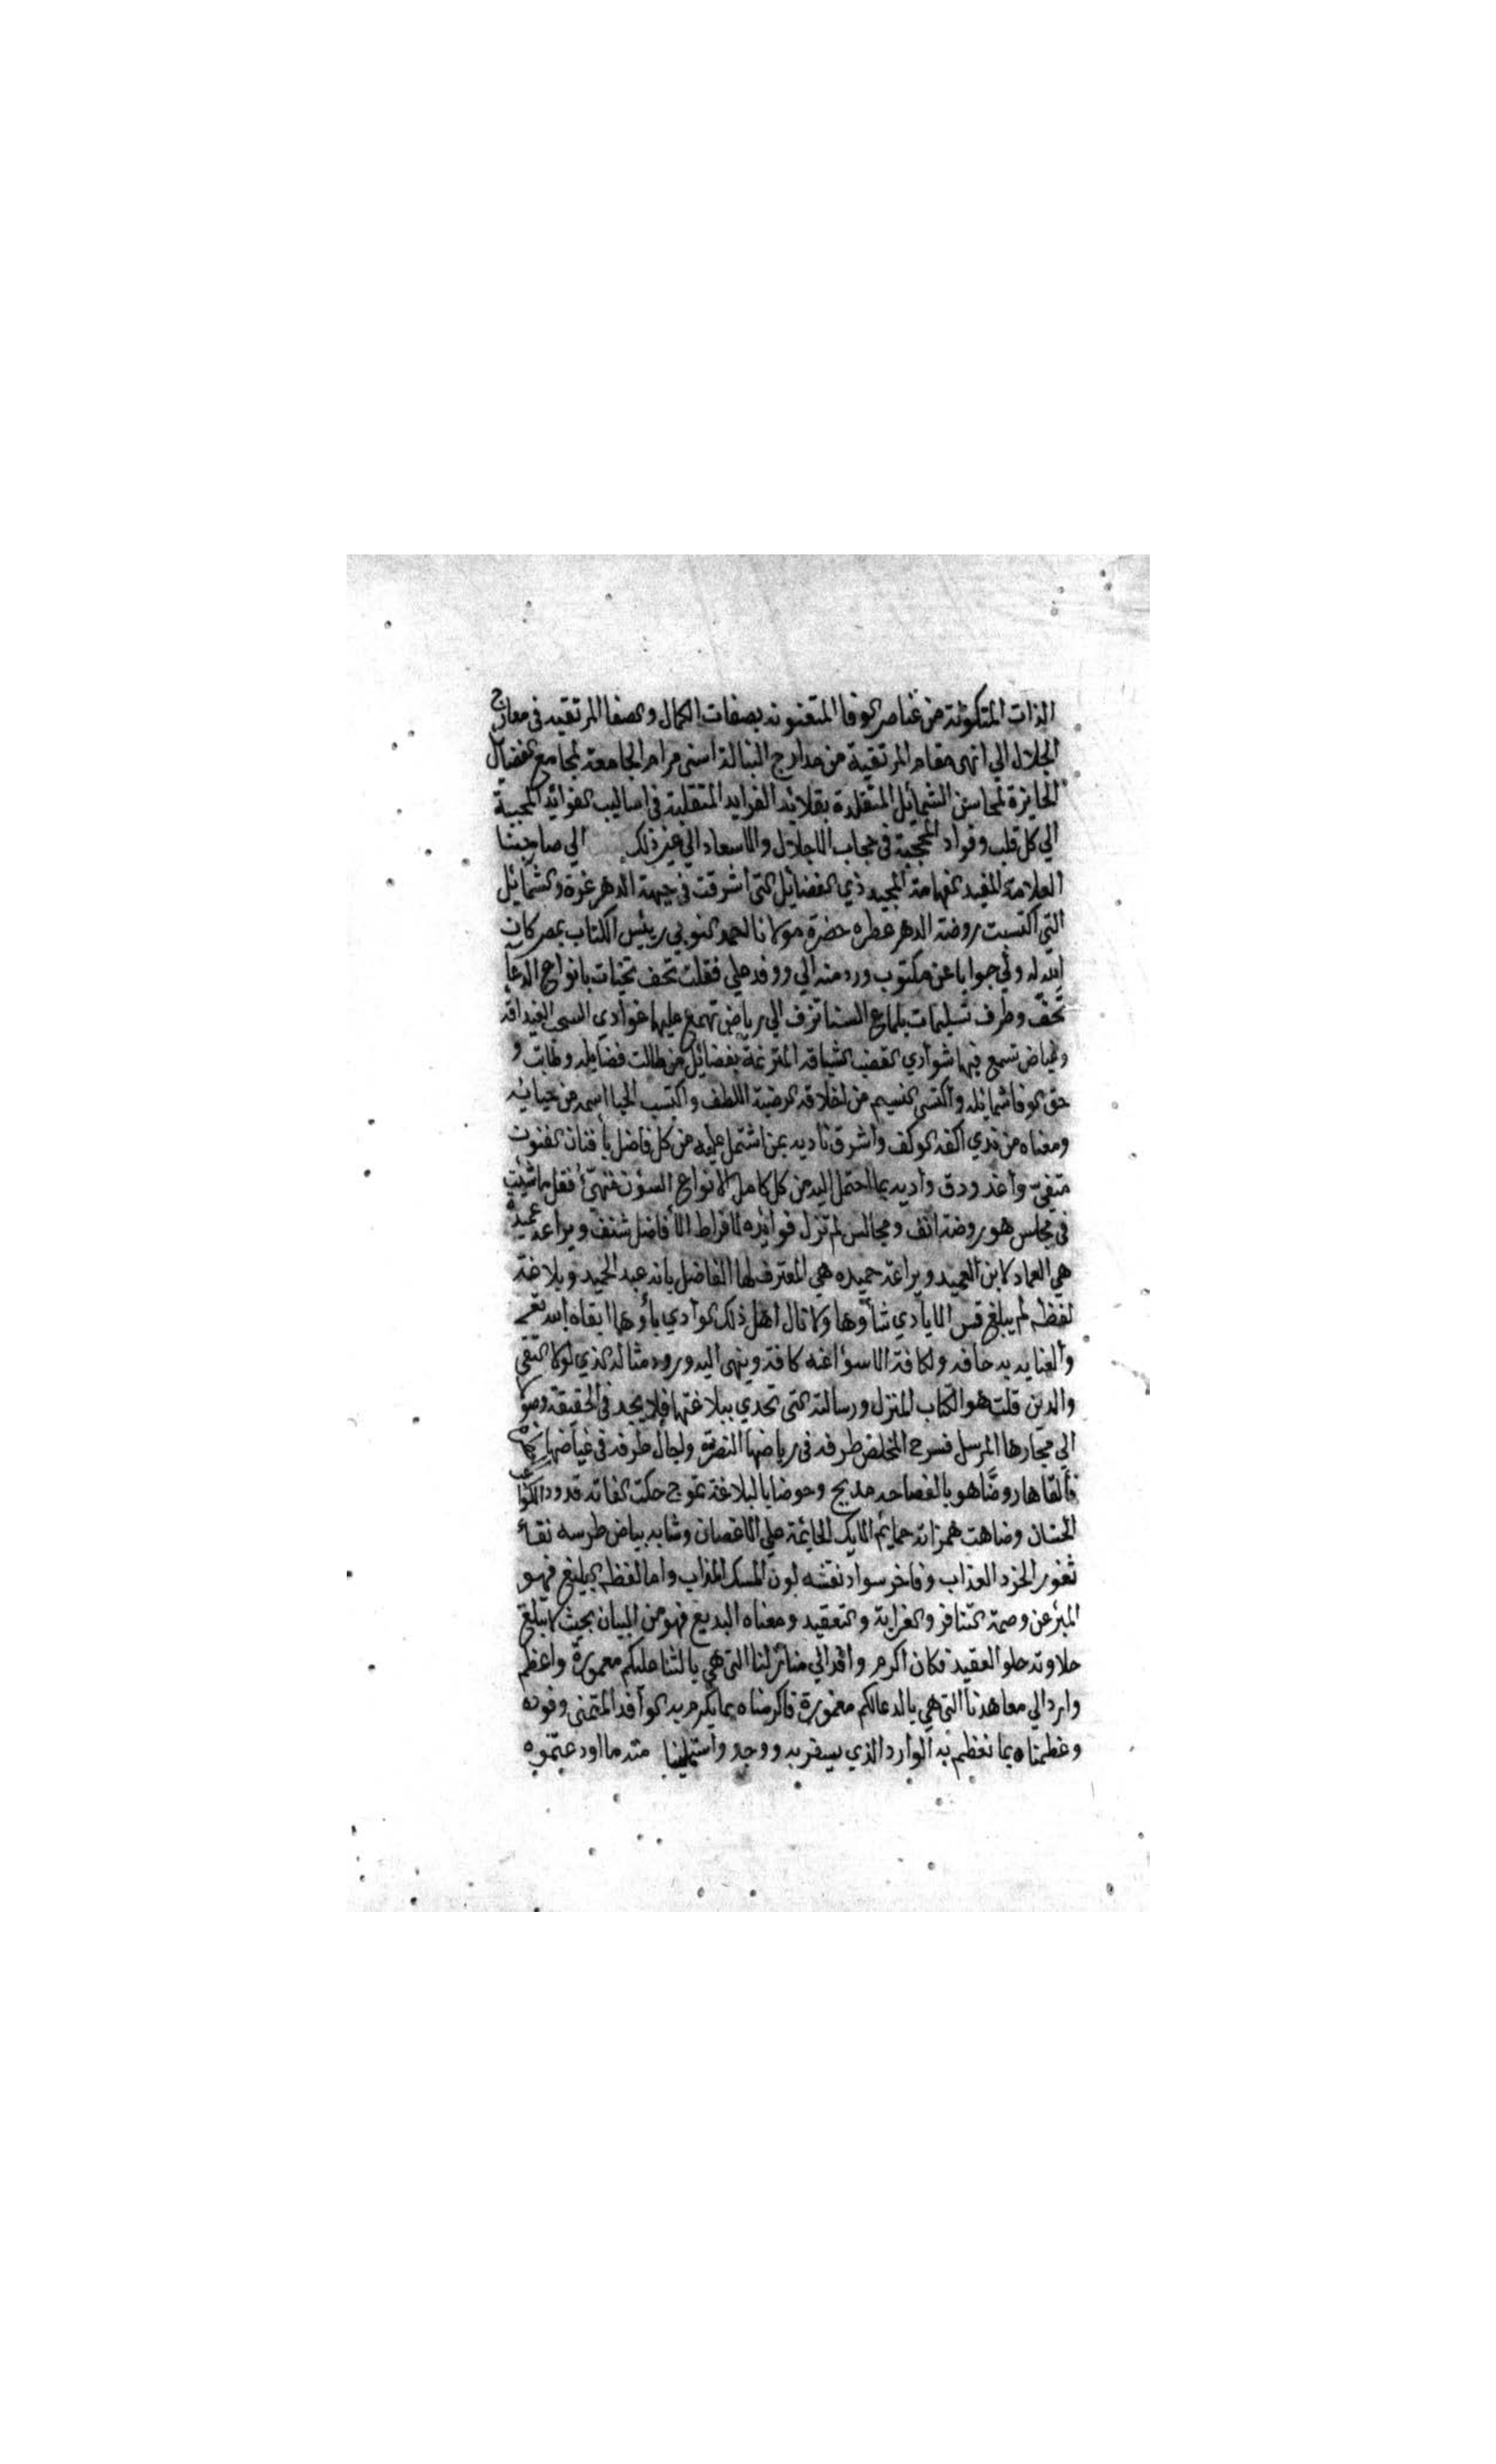 الذات المتكونة من عناصر الوفا المتعنونه بصفات الكمال والصفا المرتقيه في معارج
الجلال الي انهى مقام المرتقية من مدارج النبالة اسنى مرام الجامعة لمجامع الفضايل
الحايزة لمحاسن الشمائل المتقلدة بقلائد الفرايد المتقلبة في اساليب الفوائد المحببة
الي كل قلب وفواد المحجبة في حجاب الاجلال والاسعاد الي غير ذلك الي صاحبنا
العلامة المفيد الفهامة المجيد ذي الفضايل التي اشرقت في جبهة الدهر غرة والشمائل
التي اكتسبت روضة الدهر عطره حضرة مولانا احمد النوبي رييس الكتاب بمصر كان
الله له ولي جوابا عن مكتوب ورد منه الي ووفد علي فقلت تحف تحيات بانواع الدعا
تحف وطرف تسليمات بلماع السنا تزف الي رياض تهمع عليها غوادي السحب الغيداقه
وغياض تسمع فيها شوادي القضب المترنمة بفضائل من طالت فضايله وطابت و
حق الوفا شمائله واكتسى النسيم من اخلاقه الرضية اللطف واكتسب الحيا اسمه من حيائه
ومعناه من ندي اكفه الوكف واشرق ناديه بمن اشتمل عليه من كل فاضل بأفنان الفنون
واغدودق واديه بما احتمل اليه من كل كامل لانواع السؤن فقل ما شيت
في مجلس هو روضة انف ومجالس لم تزل فوائده لاقراط الأفاضل شنف ويراعة عميدة
هي العماد لابن العميد وبراعة حميده هي المعترف لها الفاضل بانه عبد الحميد وبلاغة
لفظه لم يبلغ قس الايادي شأوها ولا نال اهل ذلك الوادي بأوها ابقاه الله تعم
وينهى اليه ورود مثاله الذي لولا التقى
والدين قلت هو الكتاب المنزل ورسالته التي تحدي ببلاغتها فلا يجد في الحقيقة وصولا
الي مجارها المرسل فسرح المخلص طرفه في رياضها النضرة واجال طرفه في غياضها
فألقاها روضا هو بالفصاحه مدبج وحوضا بالبلاغة تموج حكت الفاته قدود الكواعب
الحسان وضاهت همزاته حمايم الايك الحايمة علي الاغصان وشابه بياض طرسه نقاء
ثغور الخرد العذاب وفاخر سواد نقشه لون المسك المذاب واما لفظه البليغ فهو
المبرء عن وصمة التنافر والغرابة والتعقيد ومعناه البديع فهو من البيان بحيث لا تبلغ
حلاوته حلو العقيد فكان اكرم وافد الي منازلنا التي هي بالثنا عليكم معمورة واعظم
وارد الي معاهدنا التي هي بالدعا لكم مغمورة فاكرمناه بما يكرم به الوافد المتمنى وفوده
وعظمناه بما نعظم به الوارد الذي يسفر به ووجد واستملينا منه ما اودعتموه